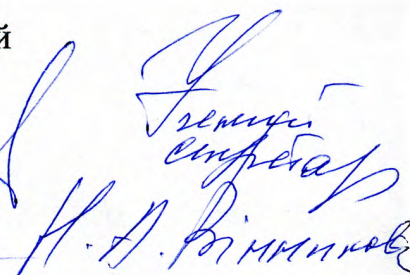 й
Учений
секретар
Н. А. Віннікова